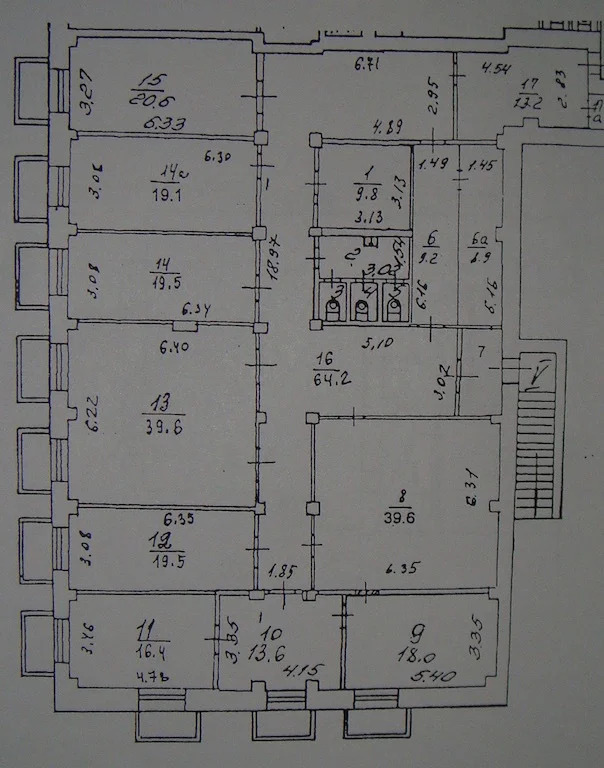 6.71
4.54
15
20.6
3.27
6.33
2.95
17
13.2
2.83
4.89
6.30
14а
19.1
3.06
1
1
9.8
3.13
3.13
1.49
1.45
6
9.2
6а
8.9
2
1.54
3.08
18.97
14
19.5
3.08
6.34
6.16
5.16
6.40
5,10
16
64.2
3.02
7
13
39.6
6.22
8
39.6
6.31
6.35
12
19.5
3.08
1.85
6.35
11
16.4
3.46
4.78
10
13.6
3.35
4.15
9
18.0
3.35
5.40